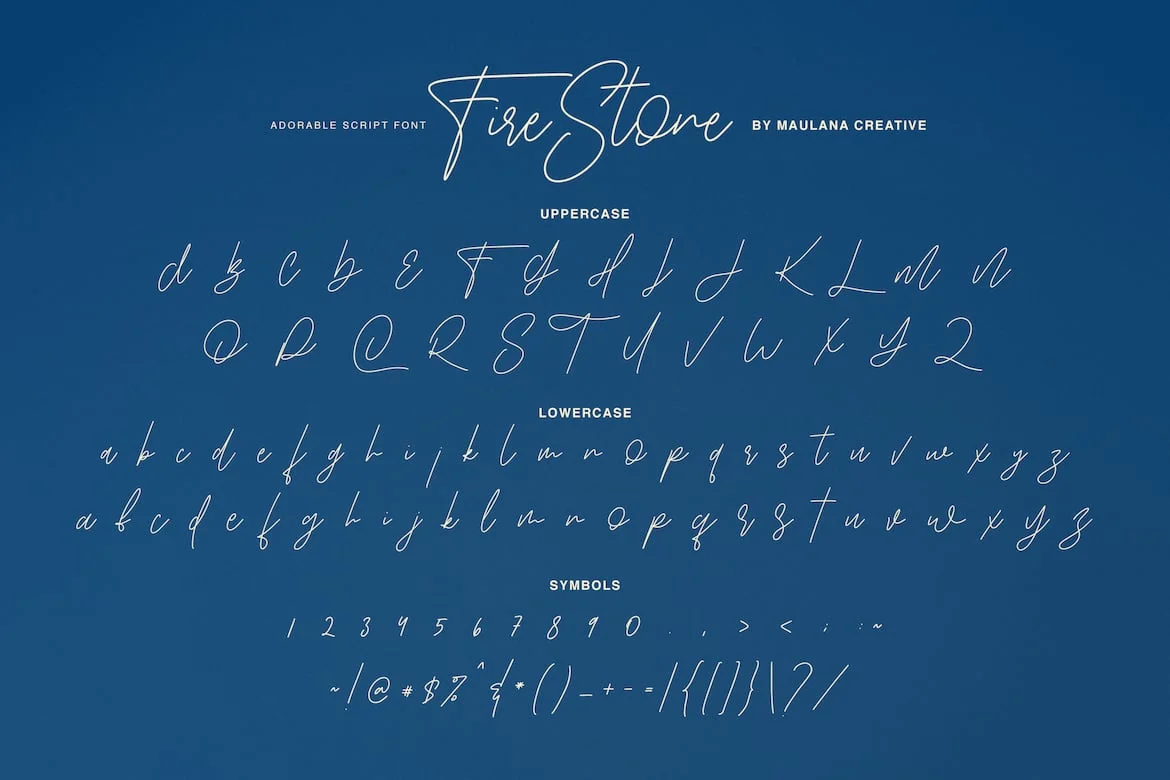 ADORABLE SCRIPT FONT FireStone BY MAULANA CREATIVE
UPPERCASE
A B C D E F G H I J K L M N
O P Q R S T U V W X Y Z
LOWERCASE
a b c d e f g h i j k l m n o p q r s t u v w x y z
a b c d e f g h i j k l m n o p q r s t u v w x y z
SYMBOLS
1 2 3 4 5 6 7 8 9 0 . , > < ; : ~
~ ! @ # $ % ^ & * ( ) _ + - = | { [ ] } \ ? /